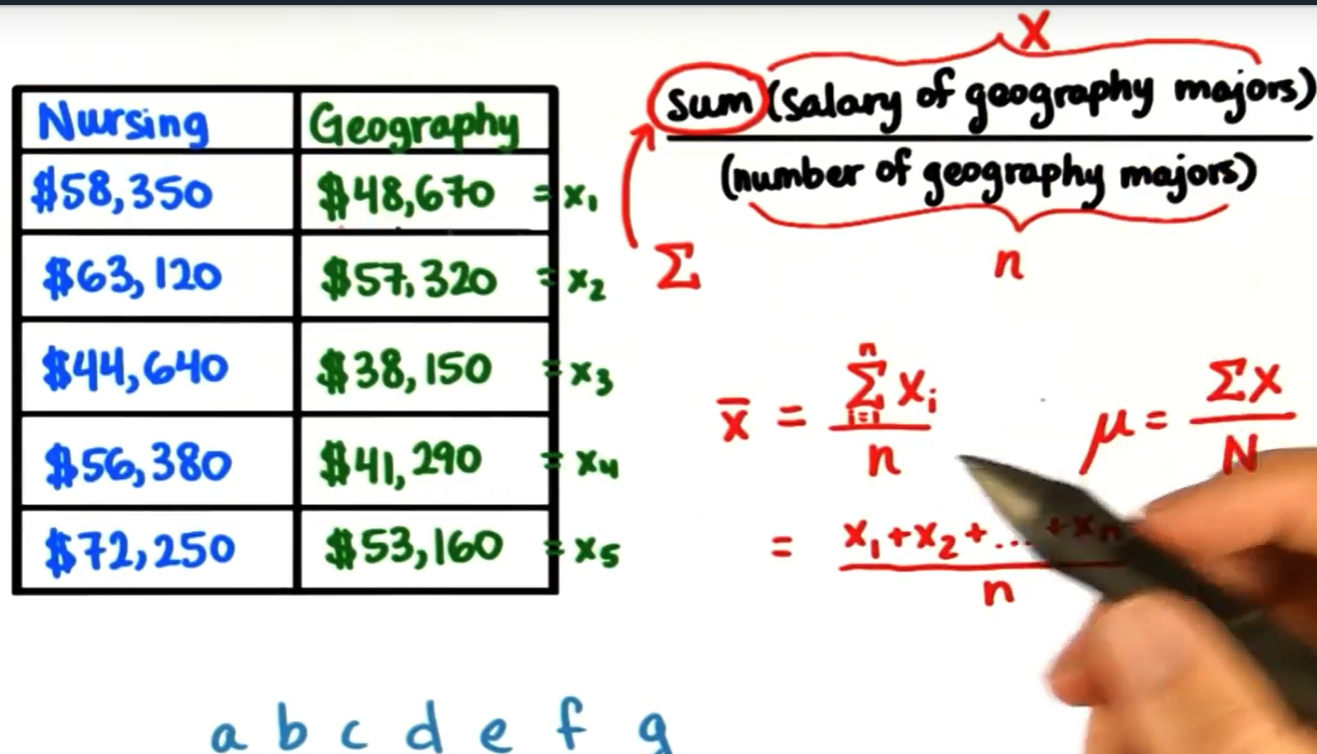 Nursing Geography
$58,350 $48,670 = x₁
$63,120 $57,320 = x₂
$44,640 $38,150 = x₃
$56,380 $41,290 = x₄
$72,250 $53,160 = x₅
x
Sum (salary of geography majors)
(number of geography majors)
Σ
n
x̄ = n Σ i=1 xᵢ
n
μ = Σx
N
= x₁+x₂+...+xₙ
n
a b c d e f g